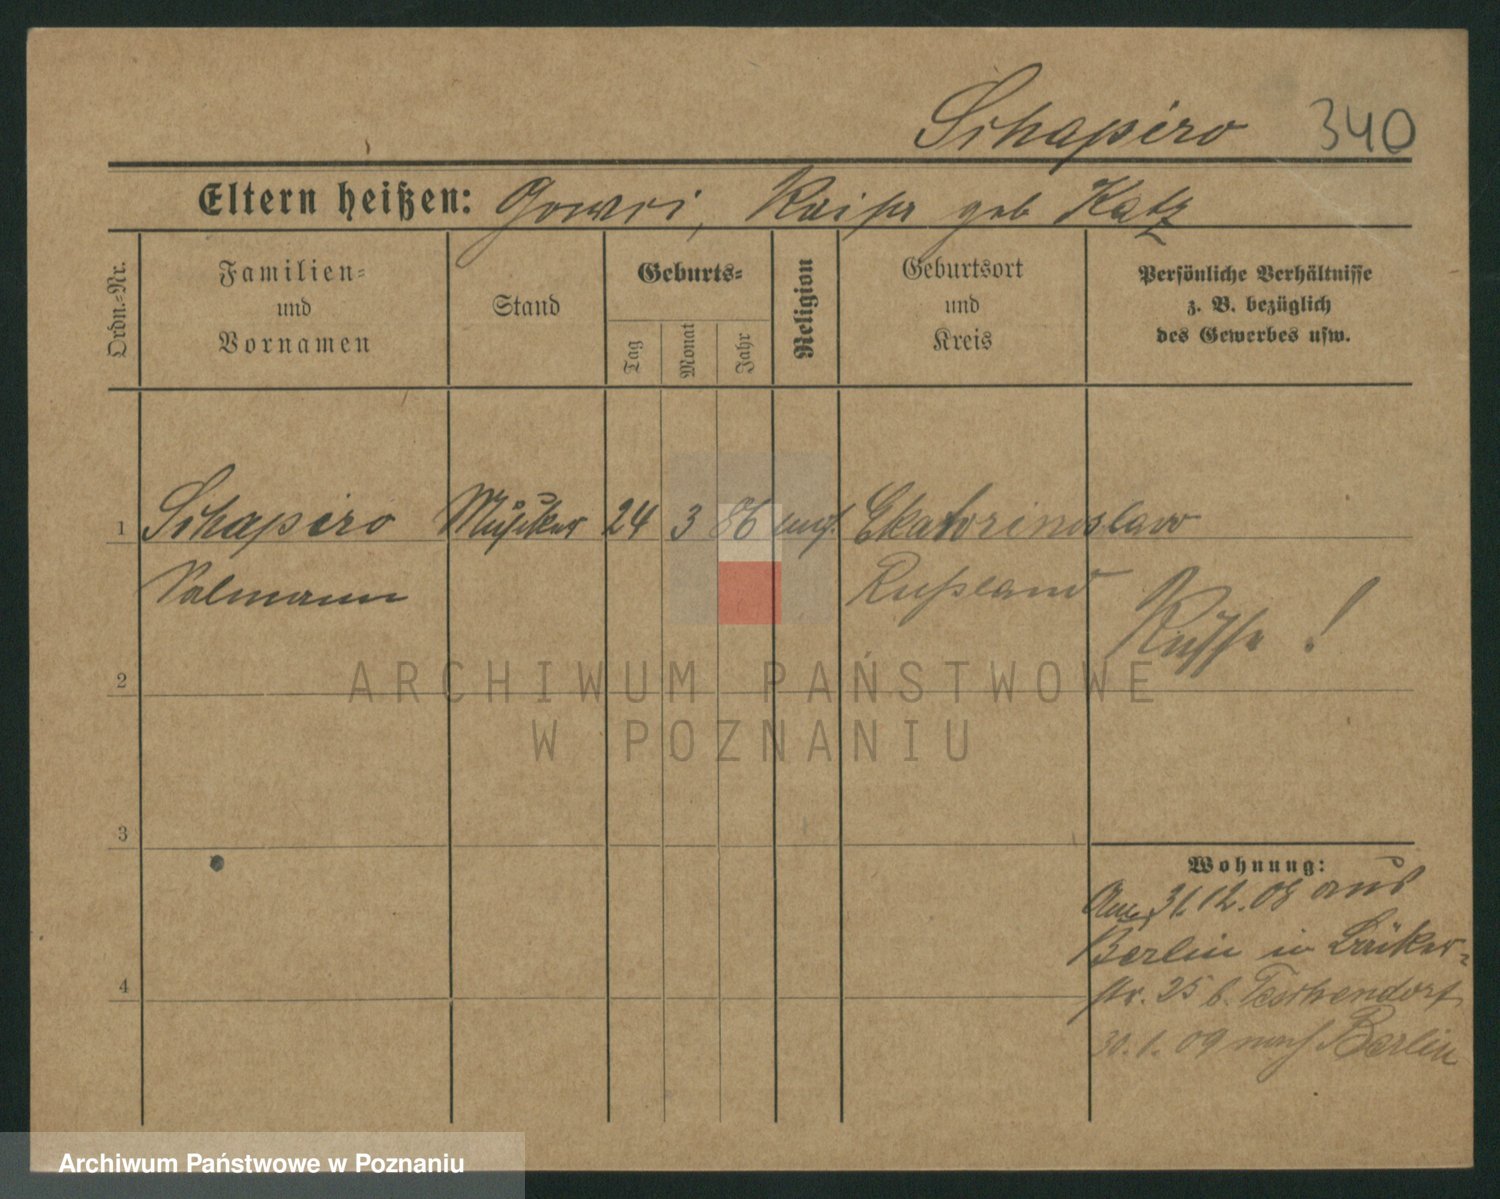 Schapiro 340
Eltern heißen: Gowsei, Kaisa geb Katz
Ordn.=Nr.
Familien=
und
Vornamen
Stand
Geburts=
Tag
Monat
Jahr
Religion
Geburtsort
und
Kreis
Persönliche Verhältnisse
z. B. bezüglich
des Gewerbes usw.
1 Schapiro Musiker 24 3 86 mos. Ekatorinoslaw
Salmann Rußland
Russe !
2
ARCHIWUM PAŃSTWOWE
W POZNANIU
3
Wohnung:
Am 31.12.08 aus
Berlin in Bäcker=
str. 25 b.
4
30.1.09 nach Berlin
Archiwum Państwowe w Poznaniu